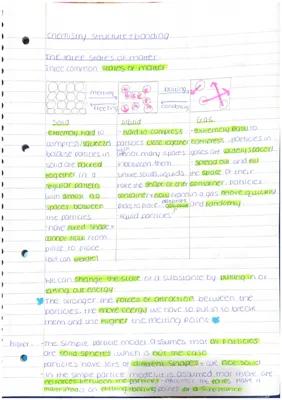 Chemistry structure + bonding
The three states of matter
Three common states of matter
melting
boiling
freezing
condensing
Solid
liquid
Gas
- extremely hard to
compress/squeeze
because particles in
solid are packed
together in a
regular pattern
with almost no
spaces between
the particles
- have fixed shape +
cannot flow from
place to place
but can vibrate!
- hard to compress
particles close together
many spaces
between them.
- unlike solid, liquids
take the shape of their
container + flow from
place to place
- liquid particles
- extremely easy to
compress, particles in
gases are widely spaced
spread out and fill
the space of their
container. Particles
in a gas move quickly
and randomly.
We can change the state of a substance by putting in or
taking out energy
The stronger the forces of attraction between the
particles, the more energy we have to put in to break
them and the higher the melting point
higher:
- The simple particle model assumes that all particles
are solid spheres which is not the case
particles have lots of different shapes + are not solid
- in the simple particle model it is assumed that there are
no forces between the particles
melting/boiling points of a substance